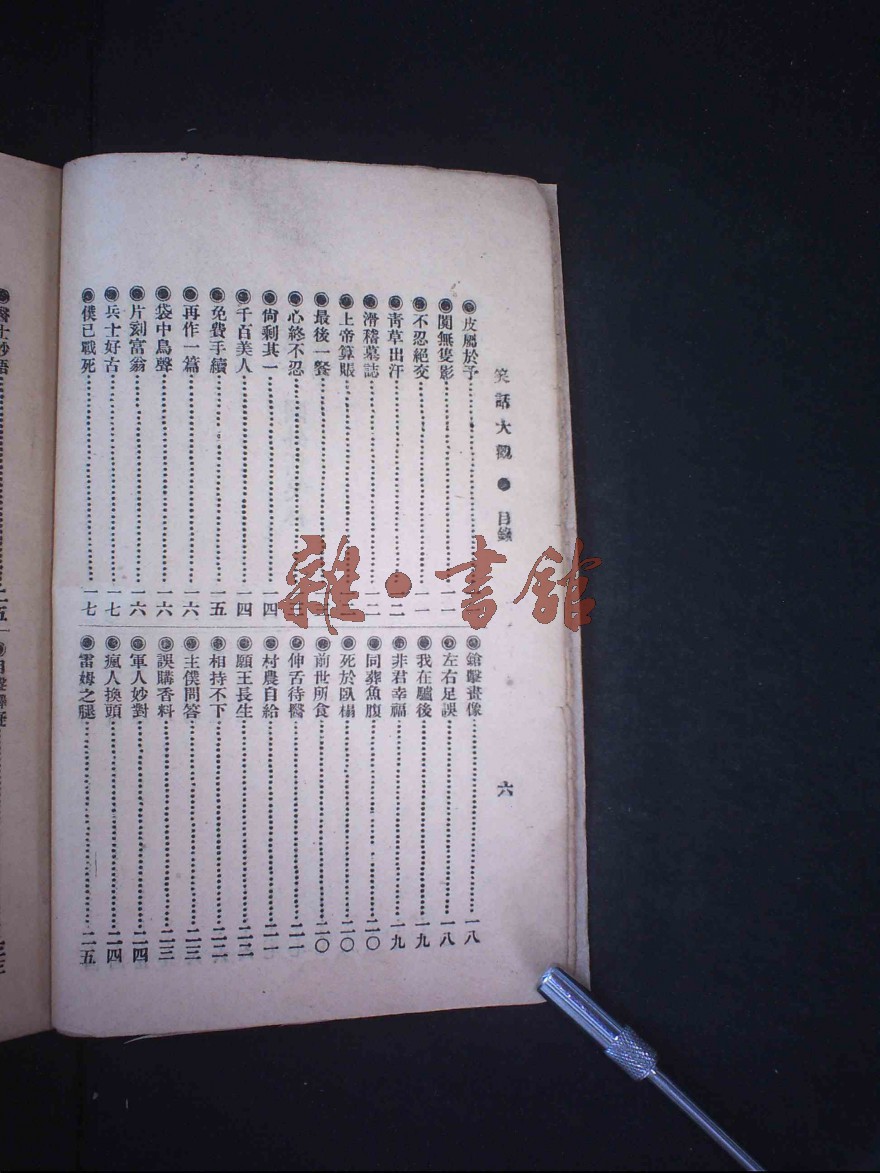 笑話大觀 ● 目錄
六
◉皮屬於予
◉闃無隻影……一一
◉不忍絕交……一一
◉青草出汗……一二
◉滑稽墓誌……一二
◉上帝算賬
◉最後一餐
◉心終不忍
◉尙剩其一……一四
◉千百美人……一四
◉免費手續……一五
◉再作一篇……一六
◉袋中鳥聲……一六
◉片刻富翁……一六
◉兵士好古……一七
◉僕已戰死……一七
◉鎗擊畫像……一八
◉左右足誤……一八
◉我在驢後……一九
◉非君幸福……一九
◉同葬魚腹……二〇
◉死於臥榻……二〇
◉前世所食……二〇
◉伸舌待醫……二一
◉村農自給……二一
◉願王長生……二二
◉相持不下……二二
◉主僕問答……二三
◉誤購香料……二三
◉軍人妙對……二四
◉瘋人換頭……二四
◉雷姆之腿……二五
雜·書館